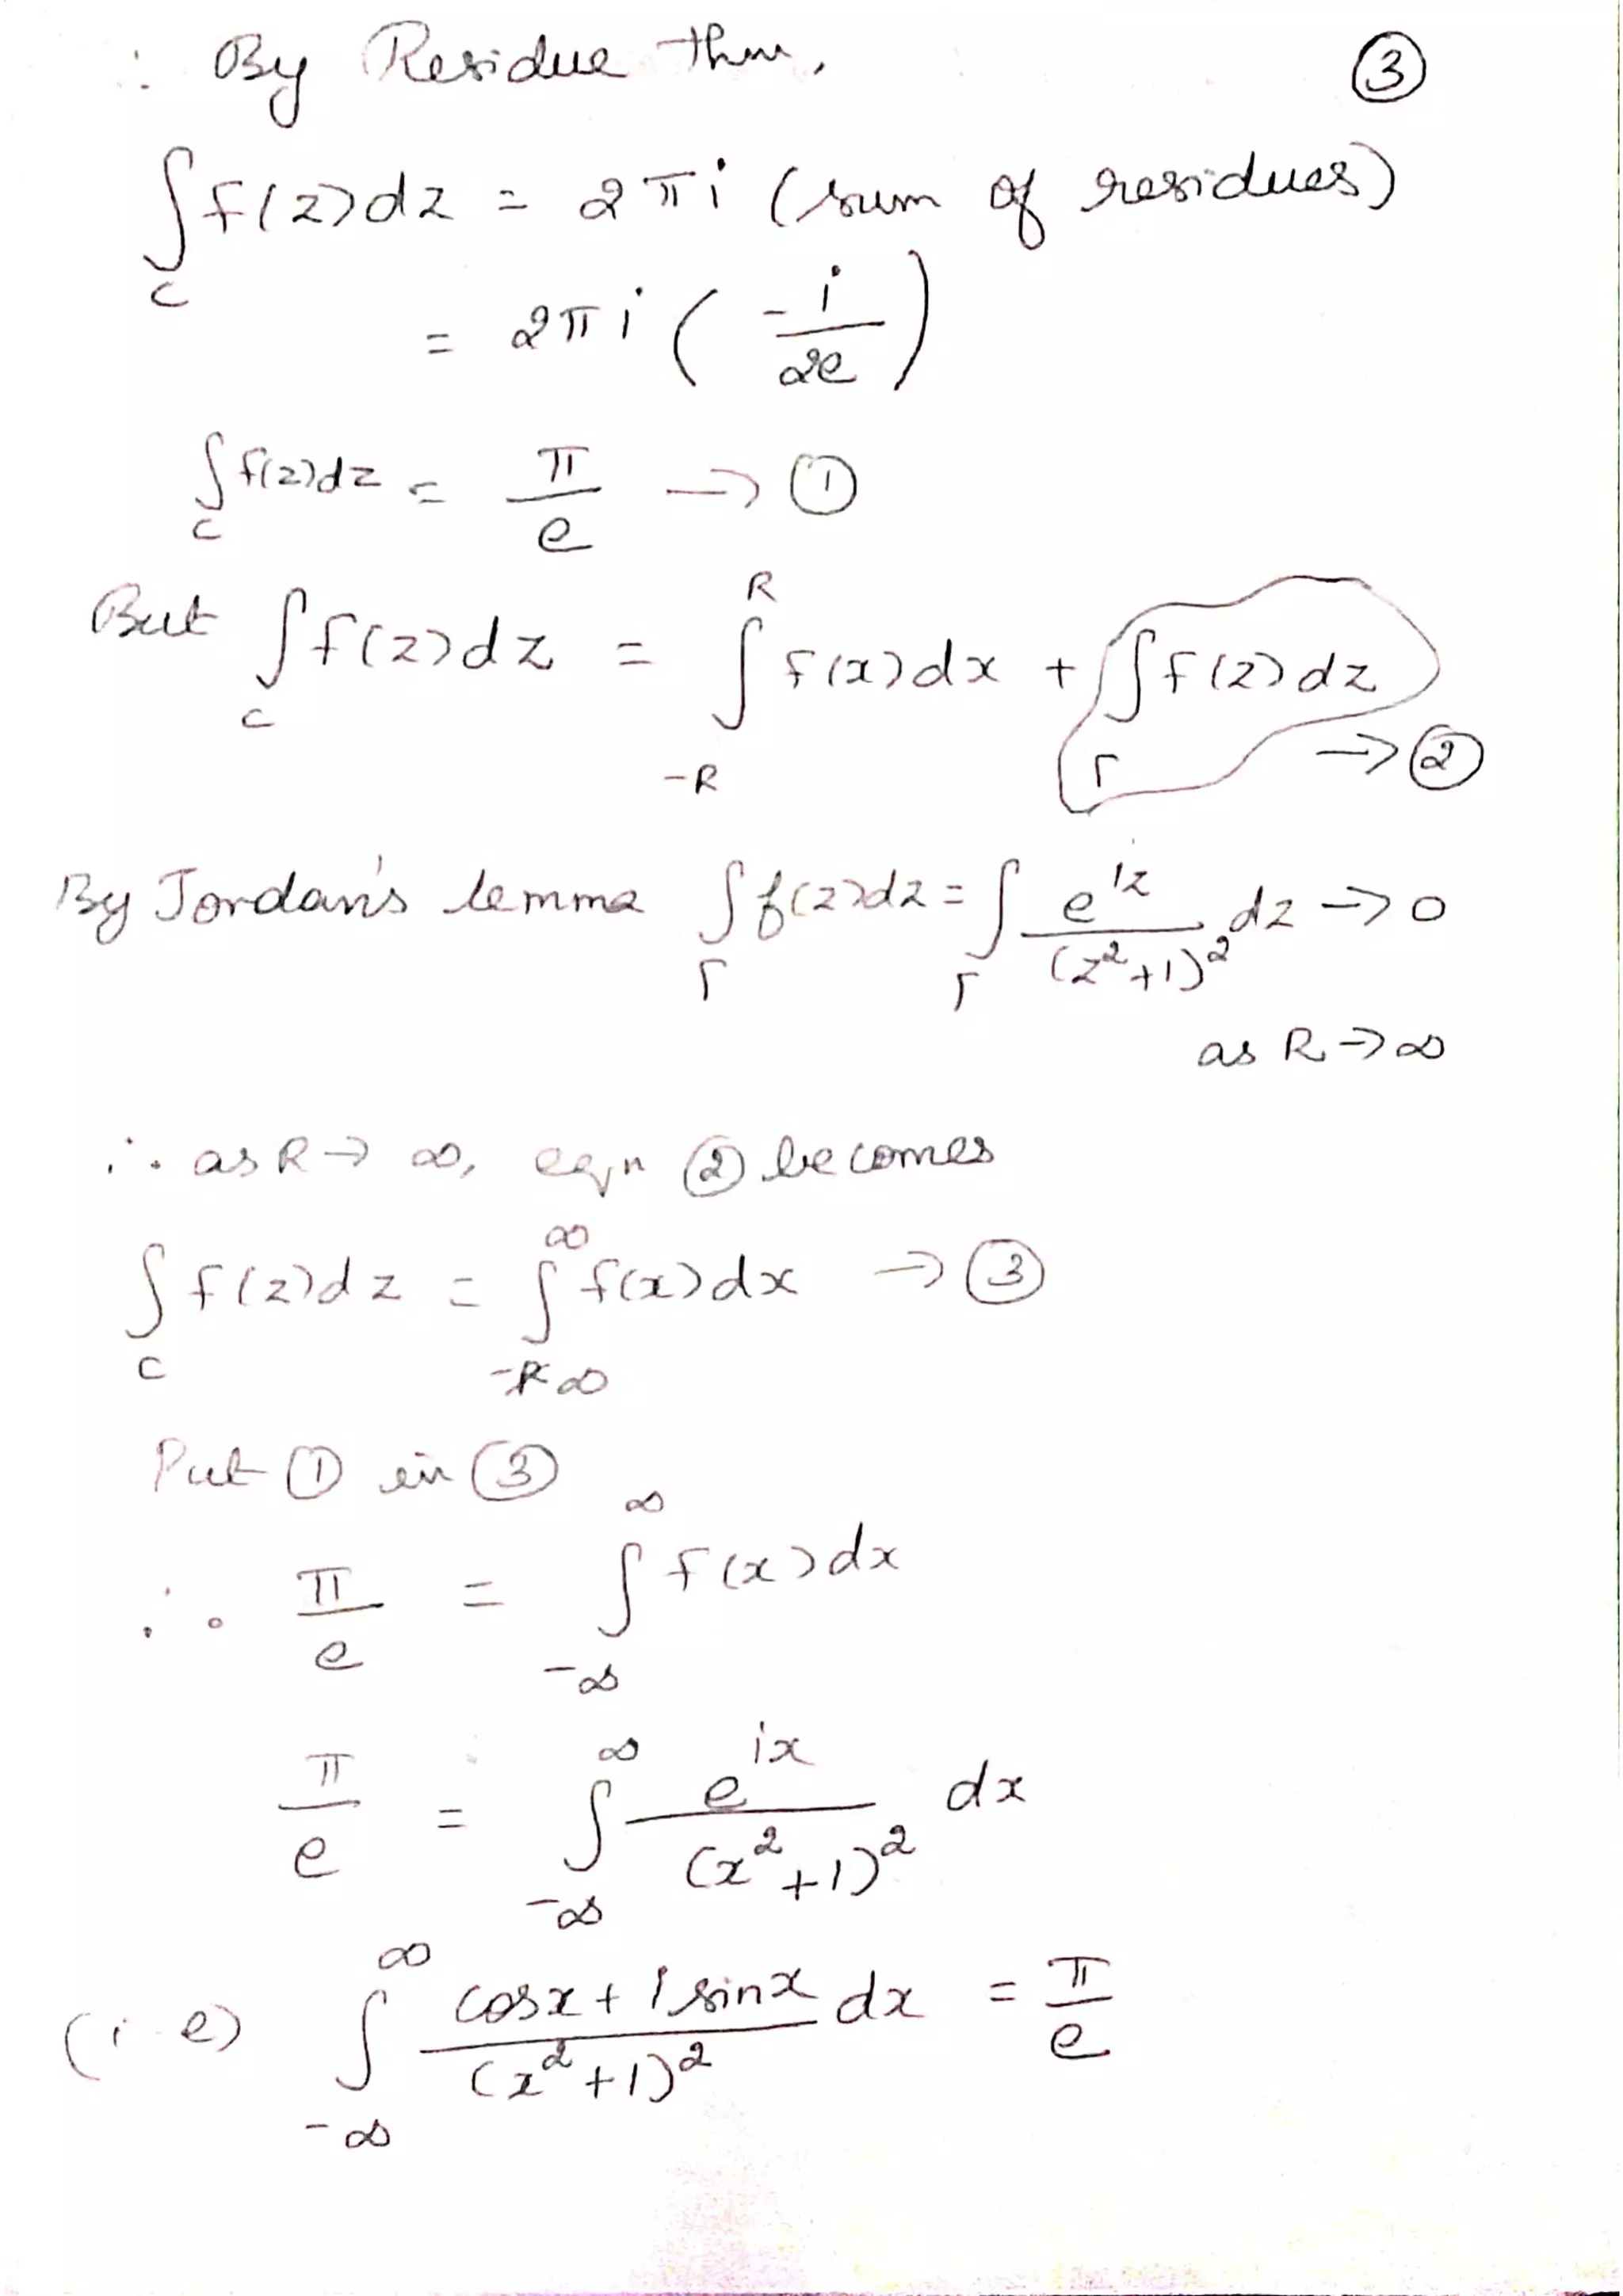 ∴ By Residue thm, ③
∫_C f(z)dz = 2πi (sum of residues)
= 2πi (-i/2e)
∫_C f(z)dz = π/e → ①
But ∫_C f(z)dz = ∫_{-R}^{R} f(x)dx + ∫_Γ f(z)dz → ②
By Jordan's lemma ∫_Γ f(z)dz = ∫_Γ e^{iz}/(z²+1)² dz → 0
as R → ∞
∴ as R → ∞, eqn ② becomes
∫_C f(z)dz = ∫_{-∞}^{∞} f(x)dx → ③
Put ① in ③
∴ π/e = ∫_{-∞}^{∞} f(x)dx
π/e = ∫_{-∞}^{∞} e^{ix}/(x²+1)² dx
(i.e) ∫_{-∞}^{∞} (cosx + i sinx)/(x²+1)² dx = π/e